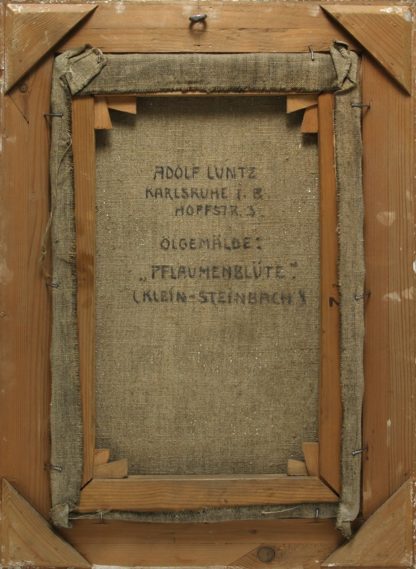 ADOLF LUNTZ
KARLSRUHE i. B.
HOFFSTR. 3.
ÖLGEMÄLDE:
„PFLAUMENBLÜTE“
(KLEIN-STEINBACH)